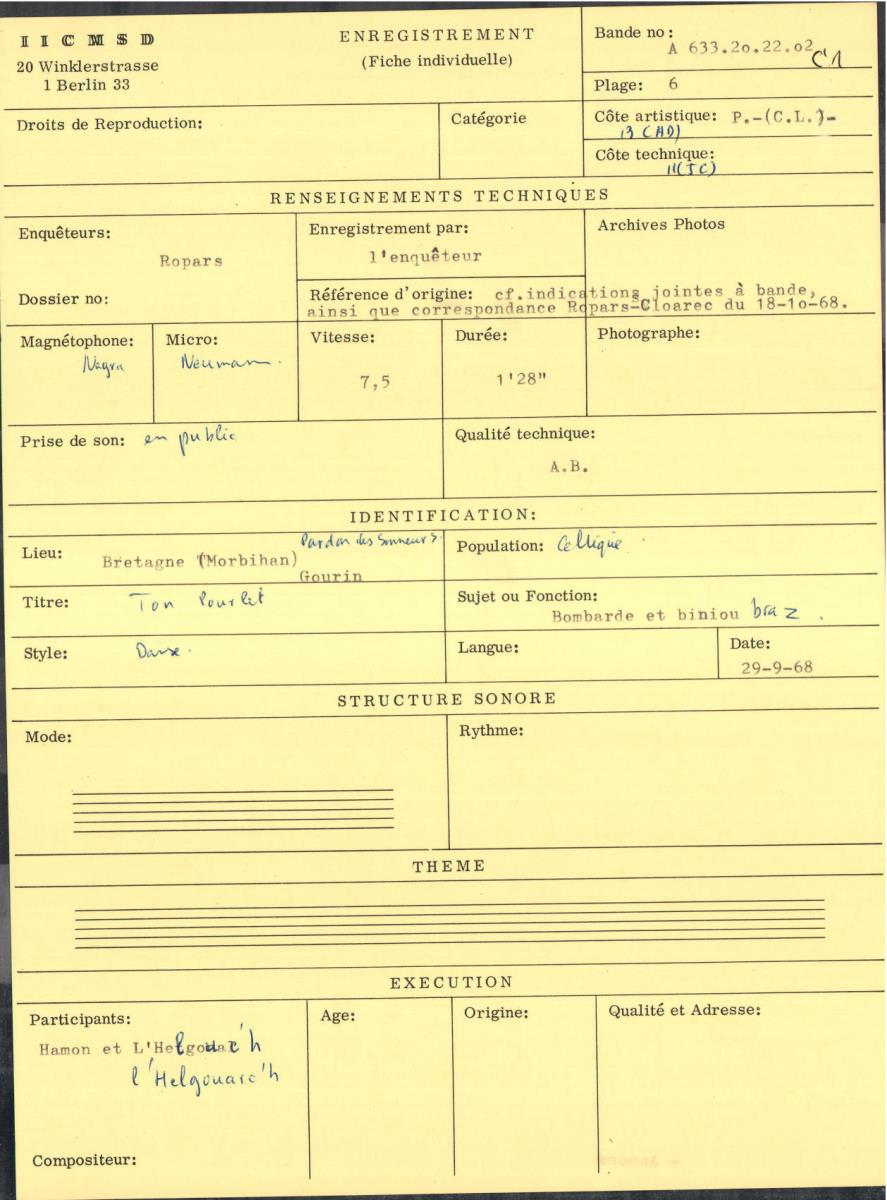 IICMSD
20 Winklerstrasse
1 Berlin 33
ENREGISTREMENT
(Fiche individuelle)
Bande no:
A 633.2o.22.o2
C1
Plage: 6
Droits de Reproduction:
Catégorie
Côte artistique: P.-(C.L.)-
13 (HD)
Côte technique:
11(JC)
RENSEIGNEMENTS TECHNIQUES
Enquêteurs:
Ropars
Dossier no:
Enregistrement par:
l'enquêteur
Archives Photos
Référence d'origine: cf.indications jointes à bande,
ainsi que correspondance Ropars-Cloarec du 18-1o-68.
Magnétophone:
Nagra
Micro:
Neumann.
Vitesse:
7,5
Durée:
1'28"
Photographe:
Prise de son: en public
Qualité technique:
A.B.
IDENTIFICATION:
Lieu:
Bretagne (Morbihan)
Pardon des Sonneurs
Gourin
Population: Celtique
Titre: Ton Pourlet
Sujet ou Fonction:
Bombarde et biniou braz.
Style: Danse.
Langue:
Date:
29-9-68
STRUCTURE SONORE
Mode:
Rythme:
THEME
EXECUTION
Participants:
Hamon et L'Helgouac'h
l'Helgouarc'h
Age:
Origine:
Qualité et Adresse:
Compositeur: